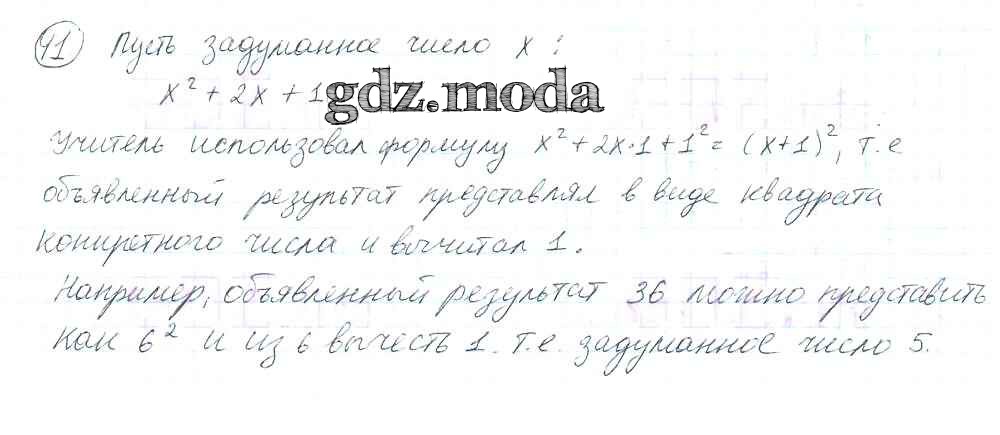 41 Пусть задуманное число x:
x² + 2x + 1 gdz.moda
Учитель использовал формулу x² + 2x·1 + 1² = (x+1)², т.е
объявленный результат представлял в виде квадрата
конкретного числа и вычитал 1.
Например, объявленный результат 36 можно представить
как 6² и из 6 вычесть 1. т.е. задуманное число 5.